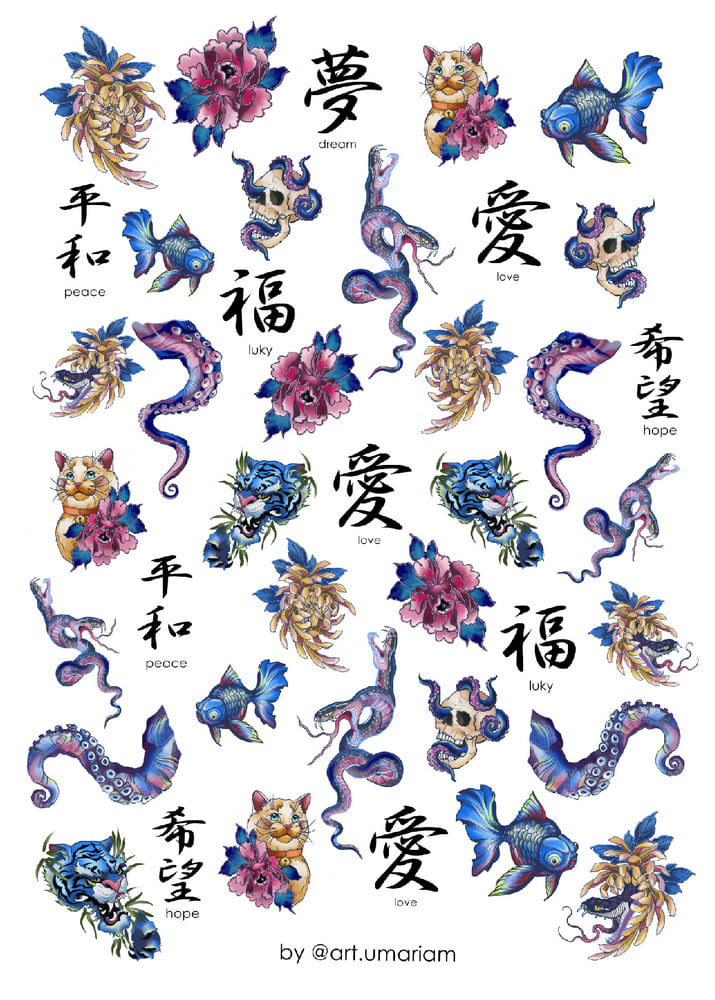 夢
dream
平和
peace
愛
love
福
luky
希望
hope
愛
love
平和
peace
福
luky
希望
hope
愛
love
by @art.umariam